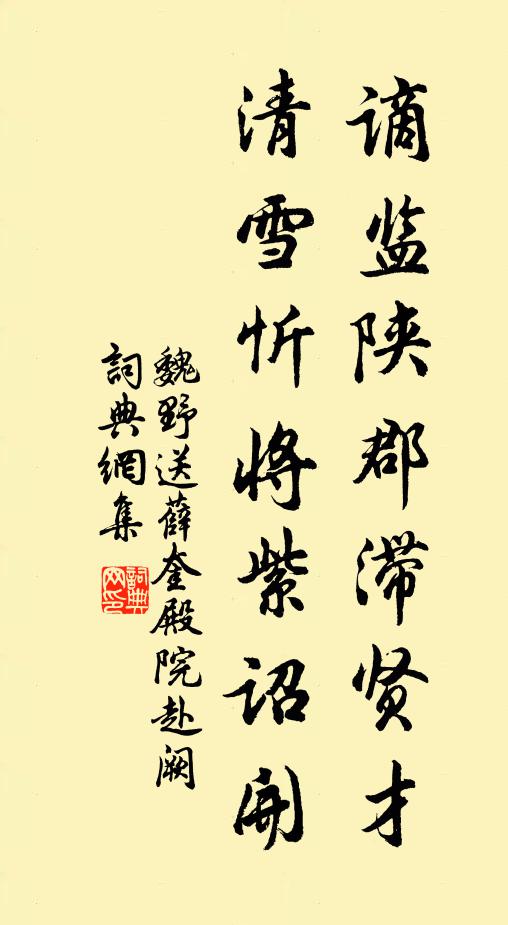 谪监陕郡滞贤才
清雪忻将紫诏开
魏野送薛奎殿院赴阙
詞典網集
詞典网印